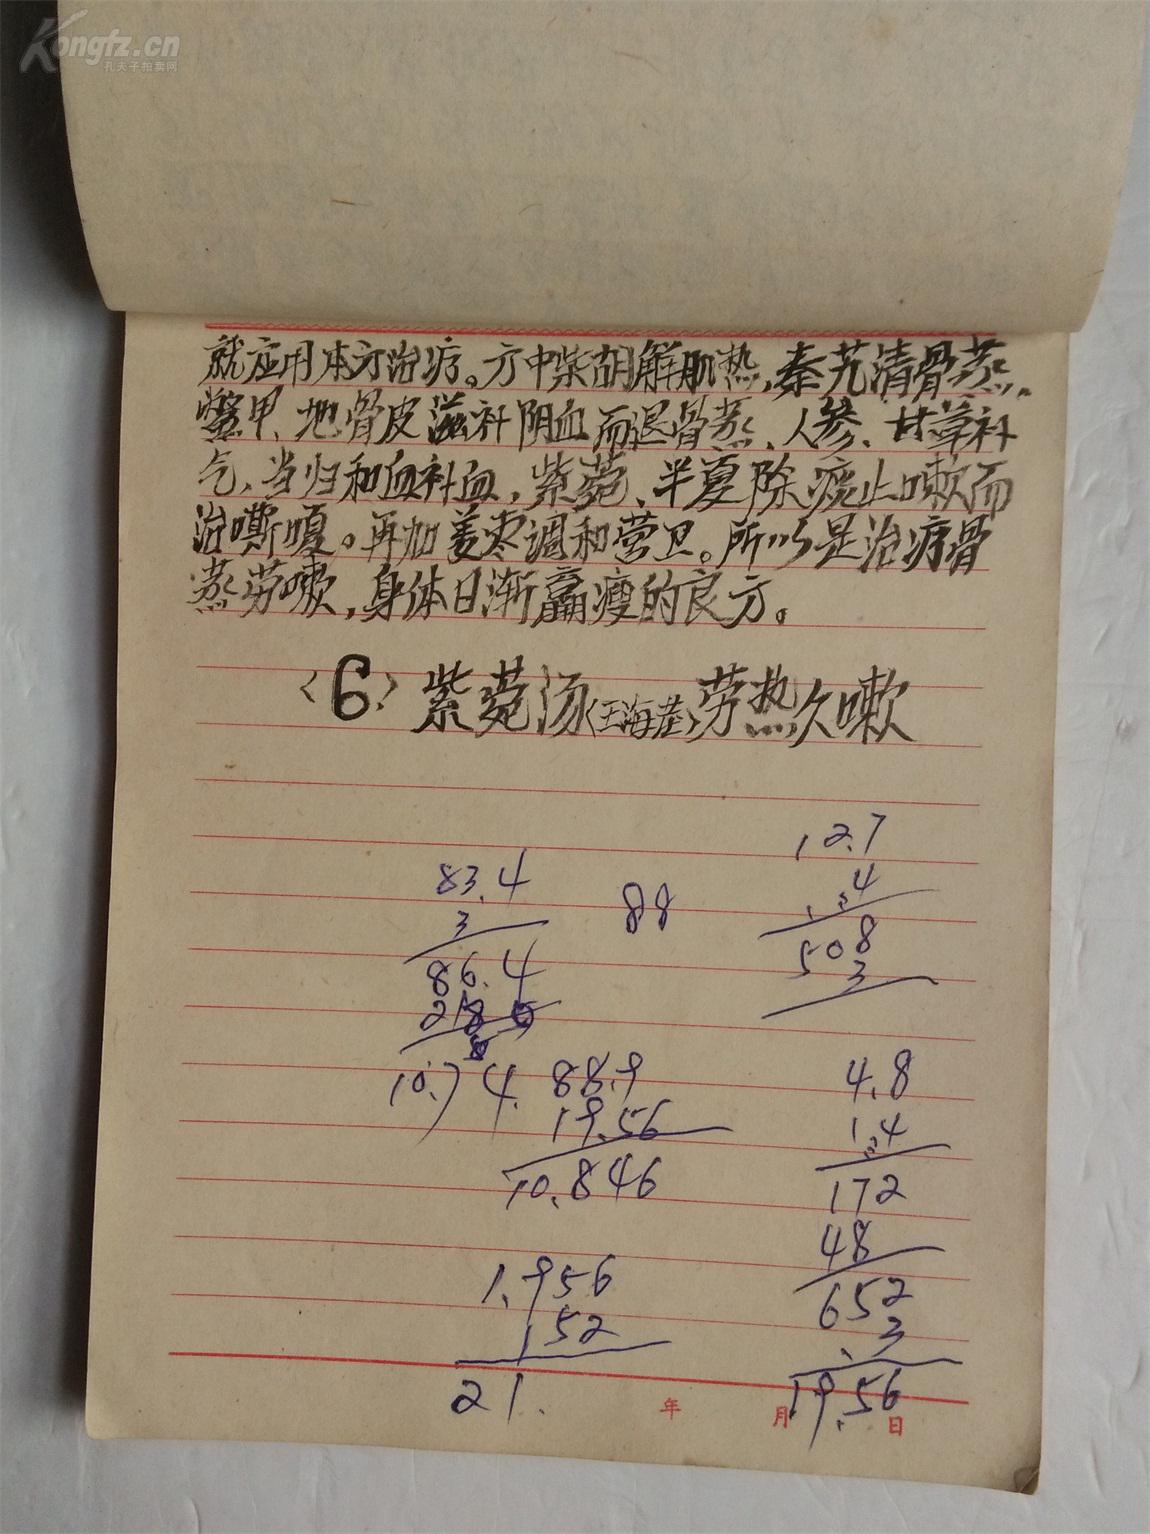 Kongfz.cn
孔夫子拍卖网
就应用本方治疗。方中柴胡解肌热,秦艽清骨蒸,
鳖甲、地骨皮滋补阴血而退骨蒸、人参、甘草补
气、当归和血补血,紫菀、半夏除痰止嗽而
治嘶嗄。再加姜枣调和营卫。所以是治疗骨
蒸劳嗽,身体日渐羸瘦的良方。
〈6〉紫菀汤〈王海崖〉劳热久嗽
83.4
3
86.4
88
12.7
.4
508
3
10.) 4. 88.9
19.56
10.846
4.8
1.4
172
48
652
.3
19.56
1.956
152
21.
年 月 日